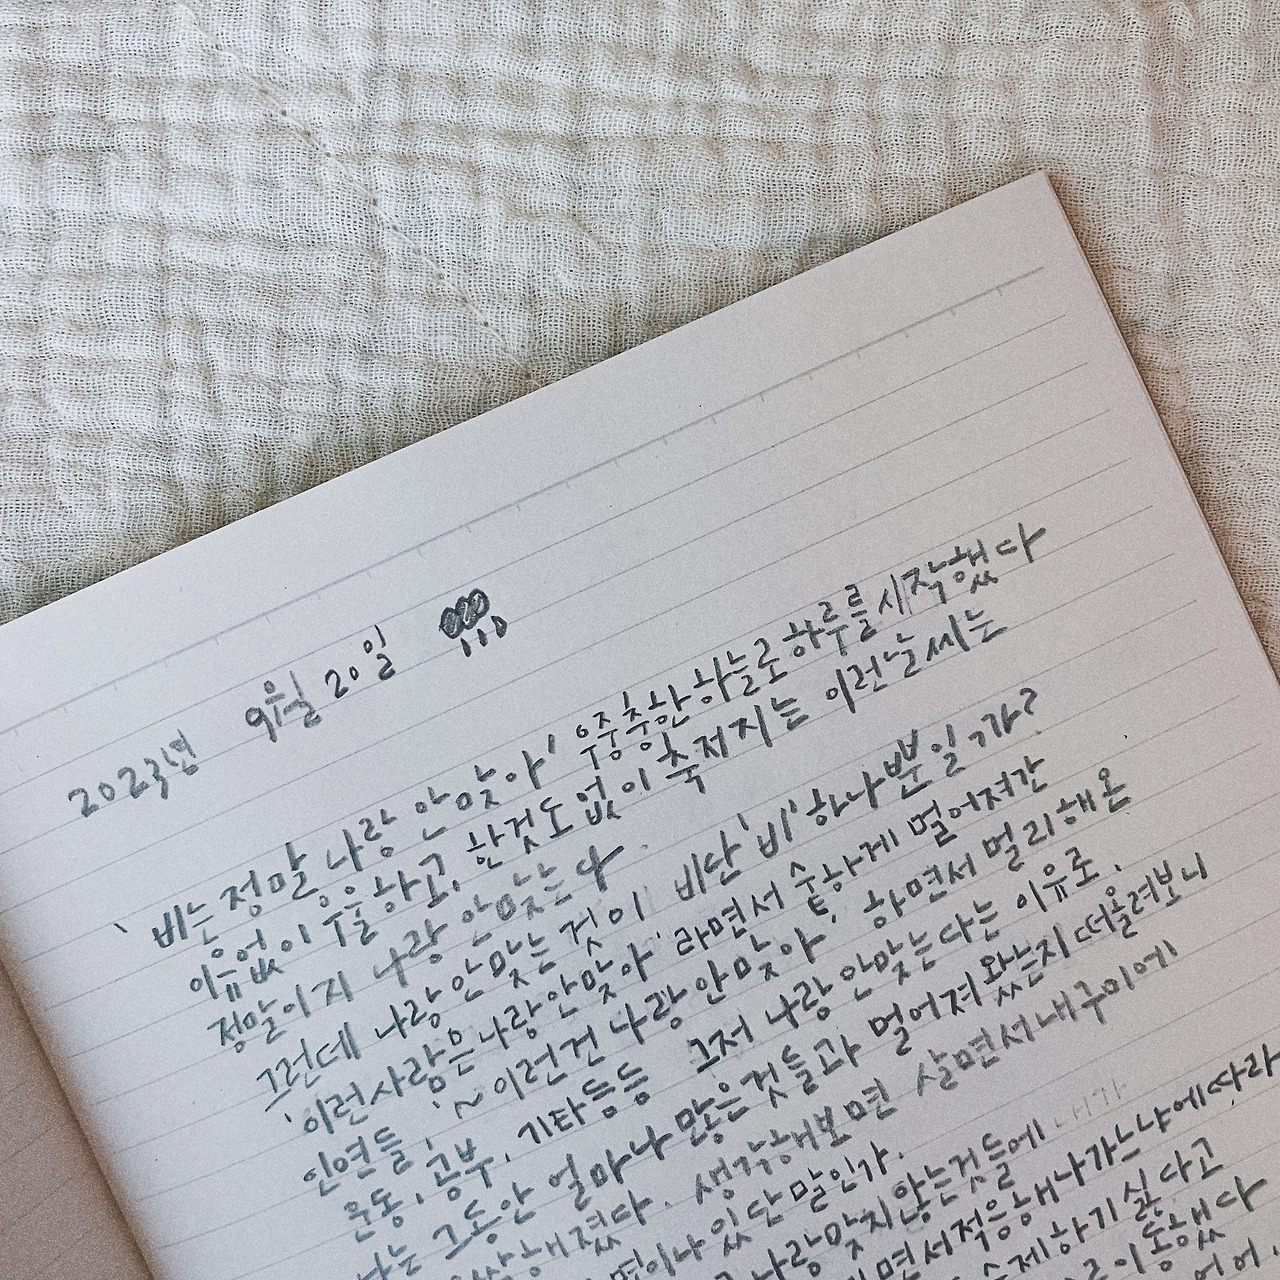 2023년 9월 20일
'비는 정말 나랑 안 맞아' 우중충한 하늘로 하루를 시작했다
이유없이 우울하고, 한것도 없이 축 처지는 이런 날씨는
정말이지 나랑 안맞는다.
그런데 나랑 안 맞는 것이 비단 '비' 하나 뿐일까?
'이런 사람은 나랑 안맞아' 라면서 숱하게 멀어져간
인연들, '~이런건 나랑 안맞아', 하면서 멀리해온
운동, 공부, 기타등등 그저 나랑 안맞는다는 이유로,
나는 그동안 얼마나 많은것들과 멀어져 왔는지 떠올려보니
해졌다. 생각해보면 살면서 내 주위에
이나 있단 말인가.
나랑맞지않는것들에 내가
면서 적응해나가느냐에따라
하기 싫다고
이동했다